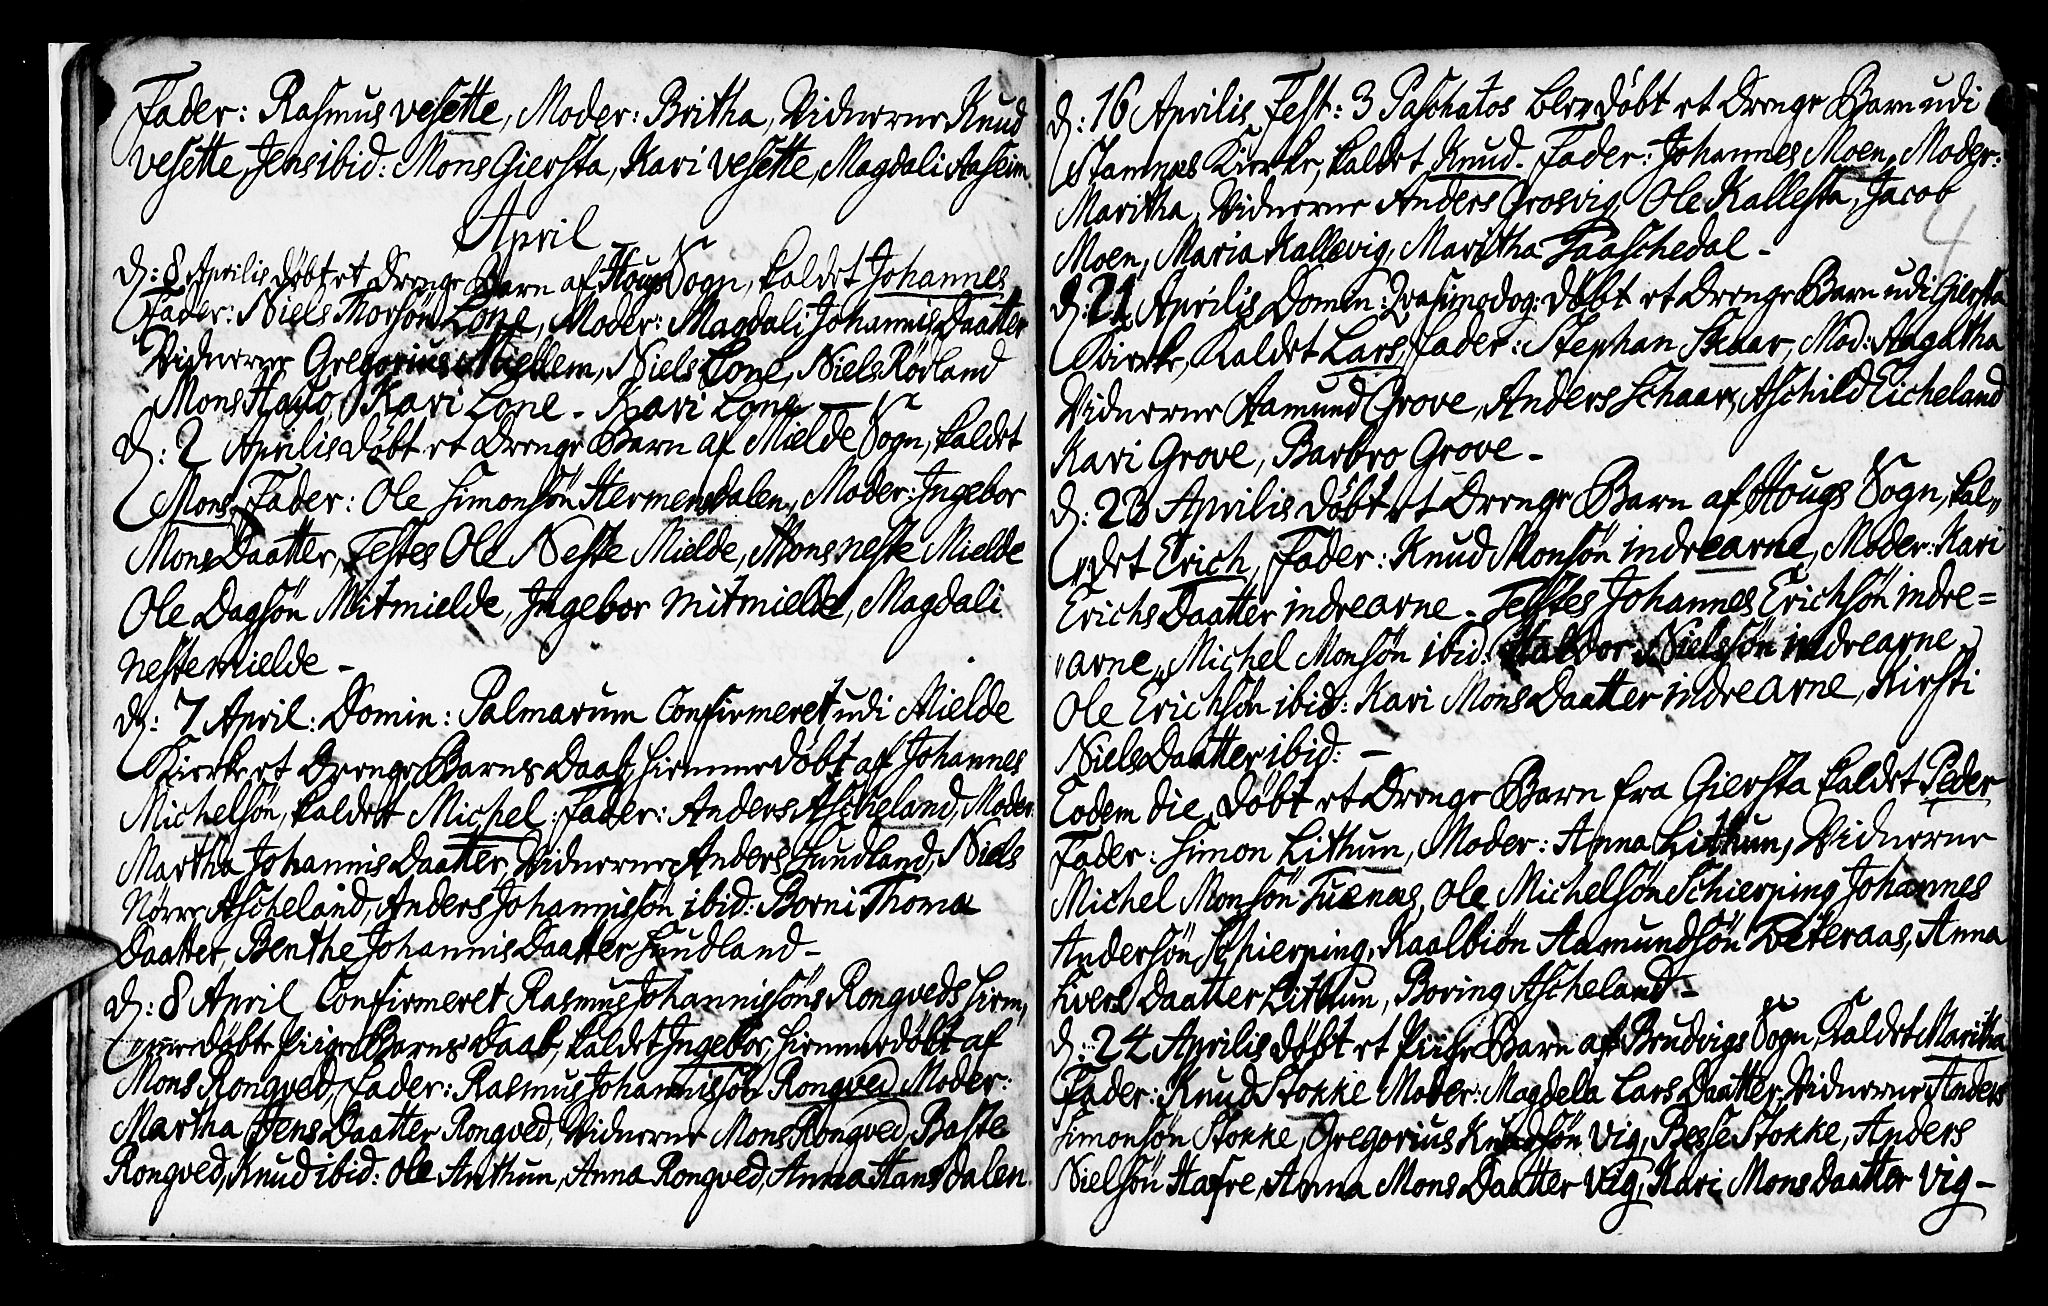 Fader: Rasmus Vesette, Moder: Britha, Vidnerne Knud
Vesette, Jens ibid: Mons Giersta, Kari Vesette, Magdali Aaseim.
April
D: 8 Aprilis døbt et Drenge Barn af Hougs Sogn, kaldet Johannes
Fader: Niels Thorsøn Lone, Moder: Magdali Johannis Daatter
Vidnerne Gregorius Miellem, Niels Lone, Niels Rødland
Mons Haug, Kari Lone - Kari Lone -
D: 2 Aprilis døbt et Drenge Barn af Mielde Sogn, kaldet
Mons, Fader: Ole Simonsøn Hermensdalen, Moder: Ingebor
Mons Daatter, Testes Ole Neste Mielde, Mons neste Mielde
Ole Dagsøn Mitmielde, Ingebor mitmielde, Magdali
nestemielde -
D: 7 April: Domin: Palmarum Confirmeret udi Mielde
Kierke et Drenge Barns Daab, hiemmedøbt af Johannes
Michelsøn, kaldet Michel, Fader: Anders Ascheland, Moder
Martha Johannis Daatter, Vidnerne Anders Hundland, Niels
Nørre Ascheland, Anders Johannissøn ibid: Borni Thoma
Daatter, Benthe Johannis Daatter Hundland -
D: 8 April Confirmeret Rasmus Johannissøns Rongveds hiem,,
,,medøbte Piige Barns Daab, kaldet Ingebor, hiemmedøbt af
Mons Rongved, Fader: Rasmus Johannissøn Rongved Moder:
Martha Jens Daatter Rongved, Vidnerne Mons Rongved, Baste
Rongved, Knud ibid: Ole Anthun, Anna Rongved, Anna Hansdalen
D: 16 Aprilis Fest: 3 Paschatos blev døbt et Drenge Barn udi
Stamnæs Kierke, kaldet Knud. Fader: Johannes Moen, Moder:
Maritha, Vidnerne Anders Grosvig, Ole Kallesta, Jacob
4
Moen, Maria Kallevig, Maritha Paaschedal -
D: 21 Aprilis Domin: Qvasimodog: døbt et Drenge Barn udi Giersta
Kierke, Kaldet Lars, Fader: Stephan Skaar, Mod: Aagatha
Vidnerne Aamund Grove, Anders Schaar, Aschild Eicheland
Kari Grove, Barbro Grove -
D: 23 Aprilis døbt et Drenge Barn af Hougs Sogn, kal,,
,,det Erich, Fader: Knud Monsøn indrearne, Moder: Kari
Erichs Daatter indrearne - Testes Johannes Erichsøn indre=
,,arne,, Michel Monsøn ibid: Haldor Nielssøn indrearne
Ole Erichsøn ibid: Kari Mons Daatter indrearne, Kirsti
Niels Daatter ibid: -
Eodem die døbt et Drenge Barn fra Giersta kaldet Peder
Fader: Simon Lithun, Moder: Anna Lithun, Vidnerne
Michel Monsøn Fuenæs, Ole Michelsøn Schierping Johannes
Andersøn Schierping, Kaalbiøn Aamundsøn Beteraas, Anna
Sivers Daatter Lithun, Boring Ascheland -
D: 24 Aprilis døbt et Piige Barn af Brudvigs Sogn, kaldet Maritha
Fader: Knud Stokke Moder: Magdela Lars Daatter, Vidnerne Anders
Simonsøn Stokke, Gregorius Knudsøn Vig, Besse Stokke, Anders
Nielsøn Hafre, Anna Mons Daatter Vig, Kari Mons Daatter Vig -